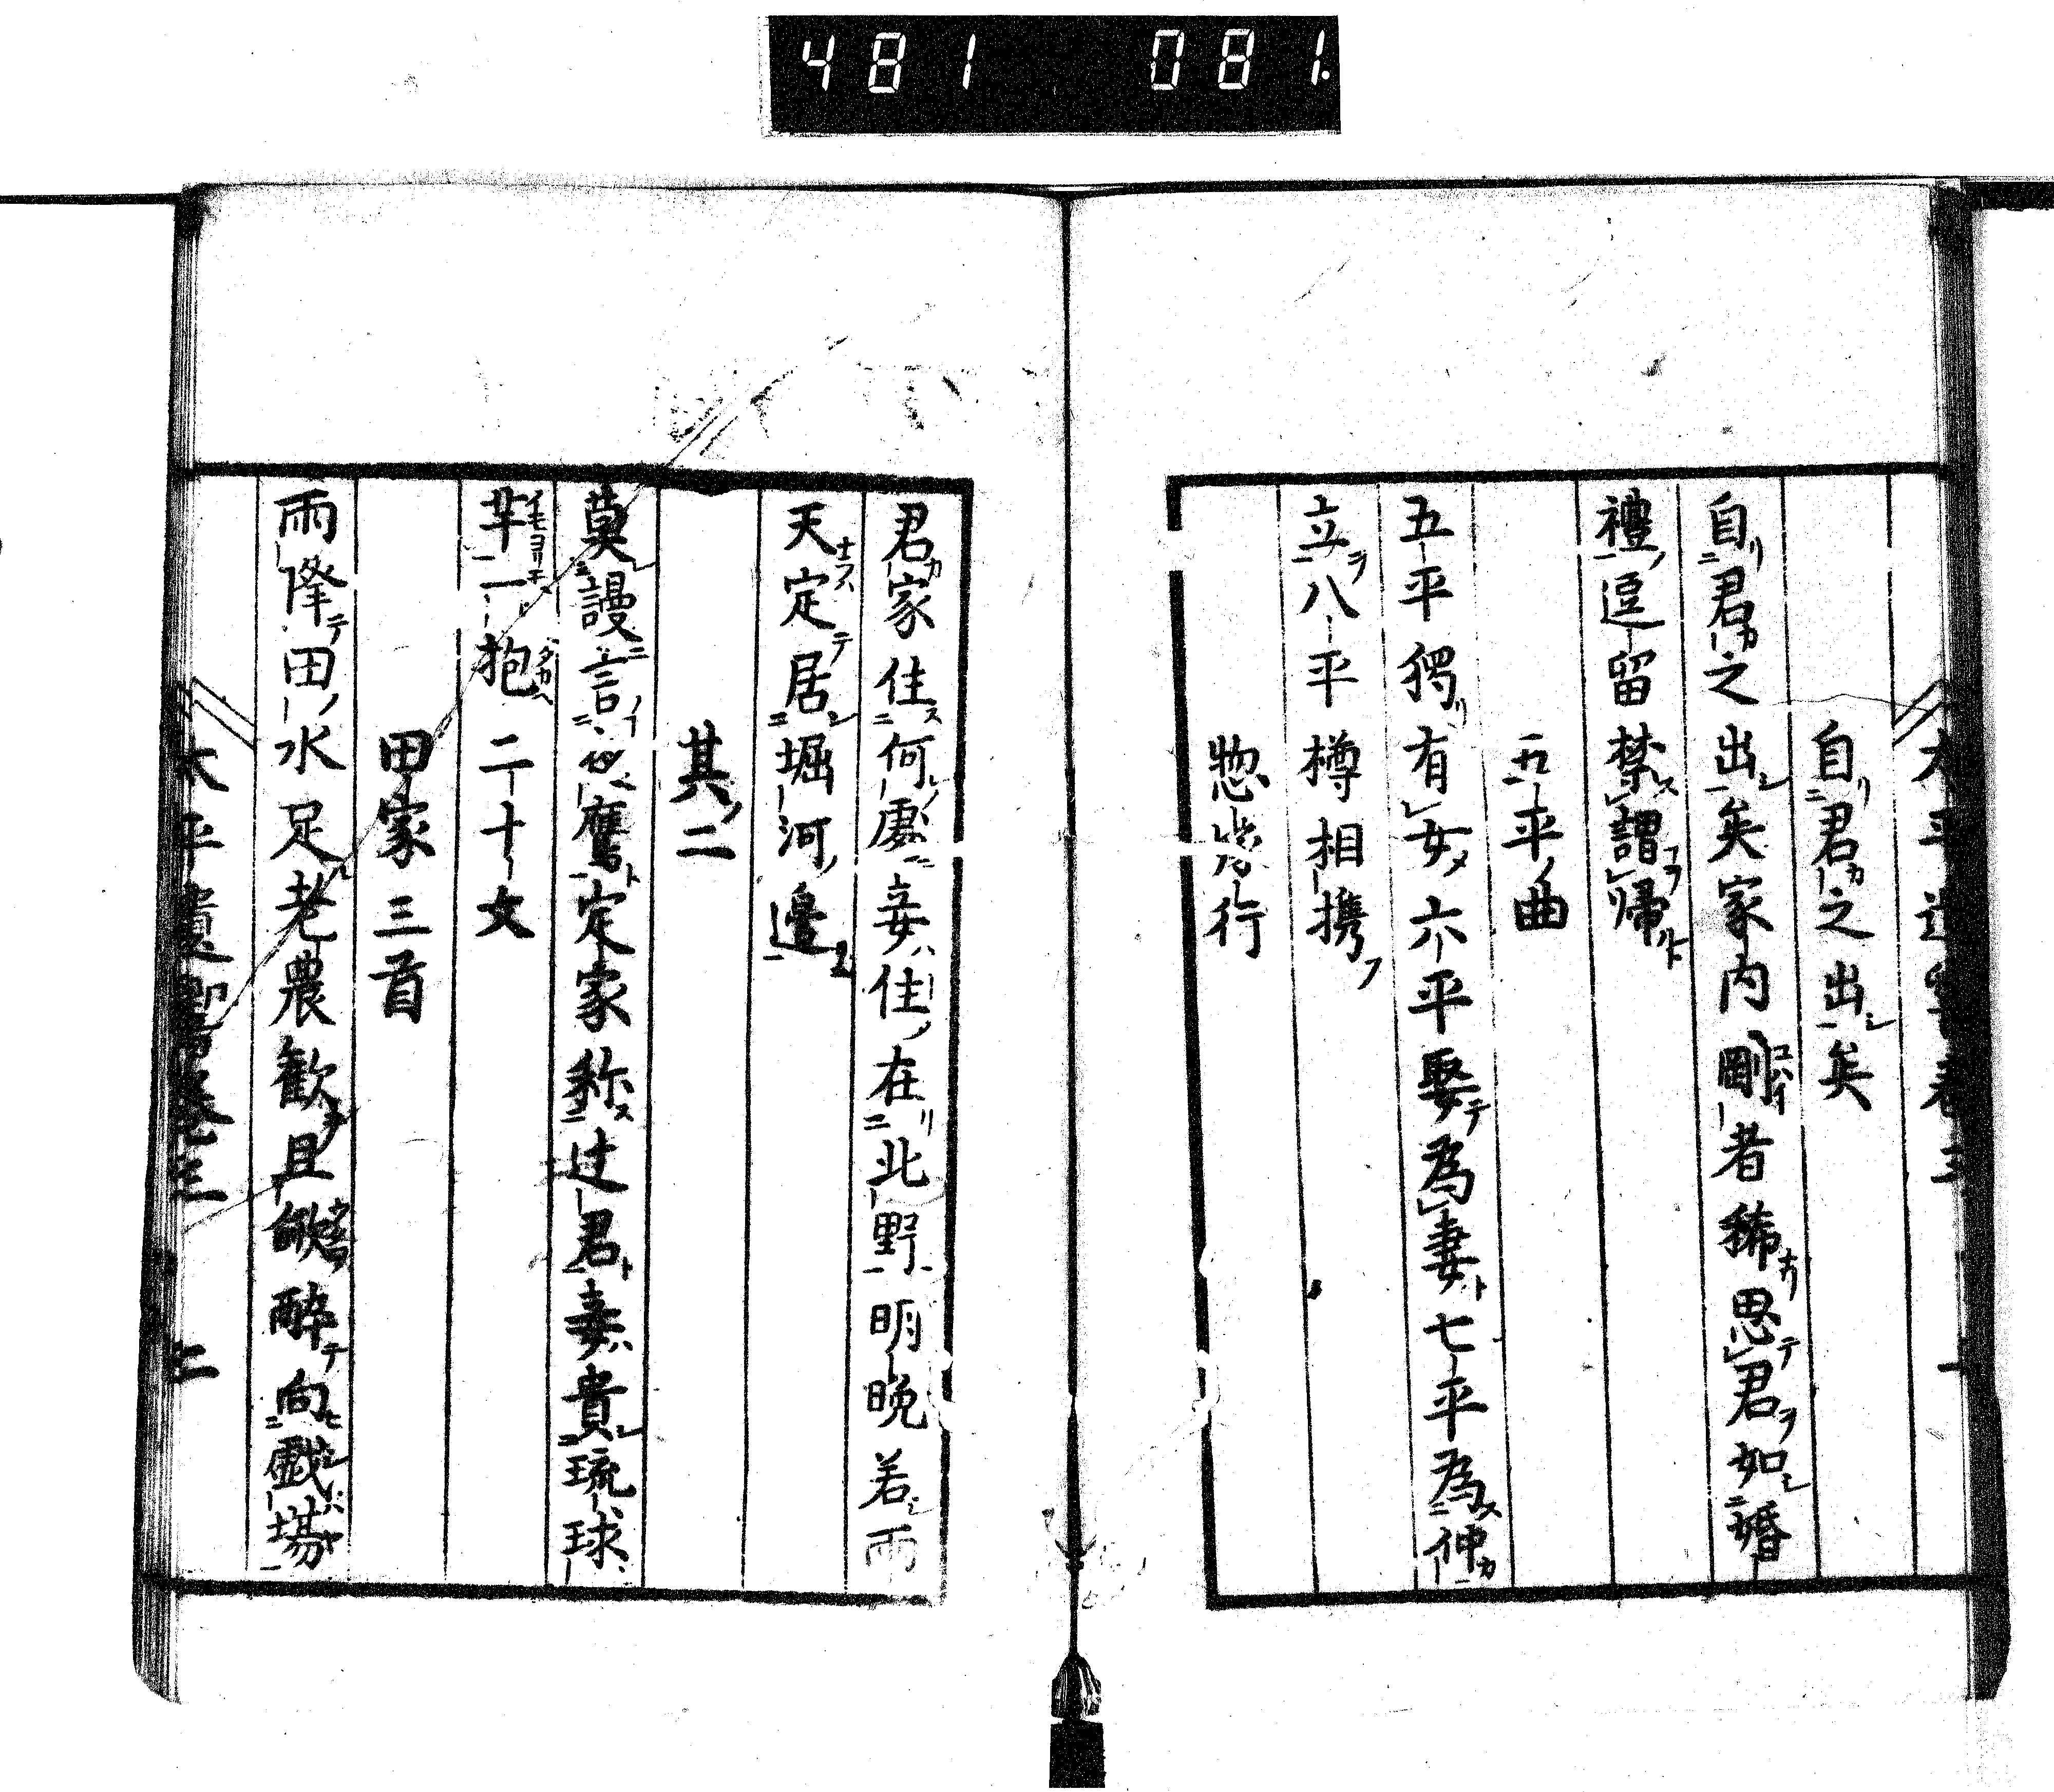 481 081.
太平遺
自君之出矣
自君之出矣家内剛者稀思君如婚
禮逗留禁謂帰
五平曲
五平獨有女六平娶為妻七平為仲
立八平樽相携
惣嫁行
君家住何處妾住在北野明晩若雨
天定居堀河邊
其二
莫謾言似鷹定家称辻君妾貴琉球
芋一抱二十文
田家三首
雨降田水足老農歓且飲酔向戯場
太平遺響巻三 二